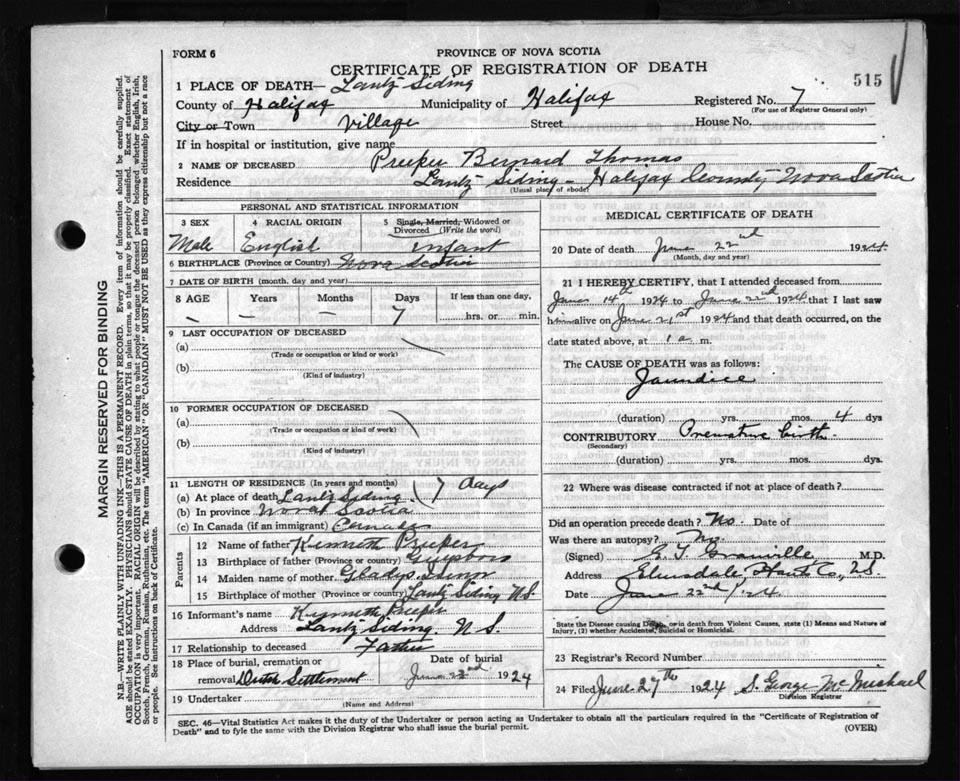 FORM 6
PROVINCE OF NOVA SCOTIA
CERTIFICATE OF REGISTRATION OF DEATH
515
1 PLACE OF DEATH— Lantz Siding
County of Halifax Municipality of Halifax Registered No. 7
(For use of Registrar General only)
City or Town Village Street House No.
If in hospital or institution, give name
2 NAME OF DECEASED Preeper Bernard Thomas
Residence Lantz Siding - Halifax County Nova Scotia
(Usual place of abode)
PERSONAL AND STATISTICAL INFORMATION
3 SEX 4 RACIAL ORIGIN 5 Single, Married, Widowed or
Divorced (Write the word)
Male English infant
6 BIRTHPLACE (Province or Country) Nova Scotia
7 DATE OF BIRTH (month, day and year)
8 AGE Years Months Days If less than one day,
— — — 7 hrs. or min.
9 LAST OCCUPATION OF DECEASED
(a)
(Trade or occupation or kind or work)
(b)
(Kind of industry)
10 FORMER OCCUPATION OF DECEASED
(a)
(Trade or occupation or kind of work)
(b)
(Kind of industry)
11 LENGTH OF RESIDENCE (In years and months)
(a) At place of death Lantz Siding 7 days
(b) In province Nova Scotia
(c) In Canada (if an immigrant) Canada
Parents
12 Name of father Kenneth Preeper
13 Birthplace of father (Province or country)
14 Maiden name of mother Gladys
15 Birthplace of mother (Province or country) Lantz Siding N.S.
16 Informant's name Kenneth Preeper
Address Lantz Siding. N.S.
17 Relationship to deceased Father
18 Place of burial, cremation or Date of burial
removal Dutch Settlement June 23rd 1924
19 Undertaker
(Name and Address)
MEDICAL CERTIFICATE OF DEATH
20 Date of death June 22nd 1924
(Month, day and year)
21 I HEREBY CERTIFY, that I attended deceased from
June 14th 1924 to June 22nd 1924 that I last saw
him alive on June 21st 1924 and that death occurred, on the
date stated above, at 1 a m.
The CAUSE OF DEATH was as follows:
Jaundice
(duration) yrs. mos. 4 dys
CONTRIBUTORY Premature birth
(Secondary)
(duration) yrs. mos. dys.
22 Where was disease contracted if not at place of death?
Did an operation precede death? No Date of
Was there an autopsy? No
(Signed) E. T. Granville M.D.
Address Elmsdale, Hants Co., N.S.
Date June 22nd/24
State the Disease causing Death, or in death from Violent Causes, state (1) Means and Nature of
Injury, (2) whether Accidental, Suicidal or Homicidal.
23 Registrar's Record Number
24 Filed June 27th 1924 S. George McMichael
Division Registrar
SEC. 46—Vital Statistics Act makes it the duty of the Undertaker or person acting as Undertaker to obtain all the particulars required in the "Certificate of Registration of
Death" and to fyle the same with the Division Registrar who shall issue the burial permit.
(OVER)
MARGIN RESERVED FOR BINDING
N.B.—WRITE PLAINLY WITH UNFADING INK—THIS IS A PERMANENT RECORD. Every item of information should be carefully supplied.
AGE should be stated EXACTLY. PHYSICIANS should STATE CAUSE OF DEATH in plain terms, so that it may be properly classified. Exact statement of
OCCUPATION is very important. RACIAL ORIGIN will be described by stating to what people or tongue the deceased person belonged whether English, Irish,
Scotch, French, German, Russian, Ruthenian, etc. The terms "AMERICAN" OR "CANADIAN" MUST NOT BE USED as they express citizenship but not a race
or people. See instructions on back of Certificate.